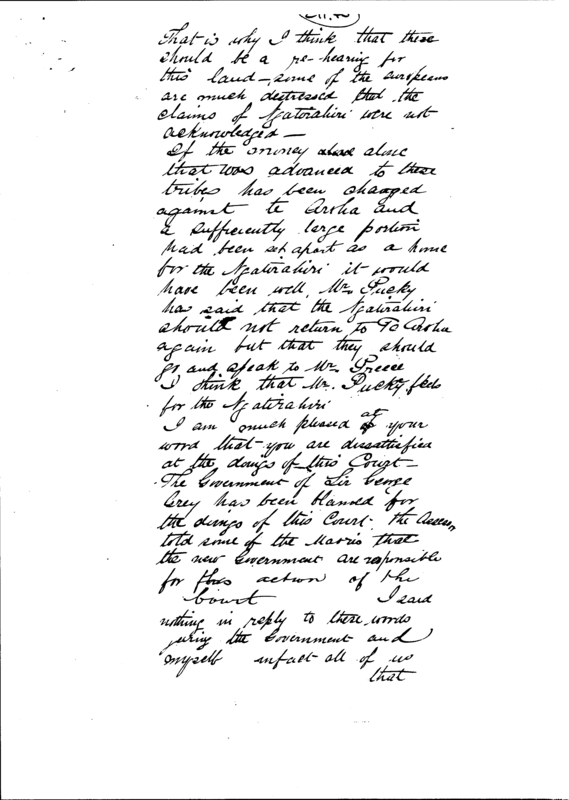 That is why I think that there
should be a re-hearing for
this land - some of the Europeans
are much distressed that the
claims of Ngatirahiri were not
acknowledged -
If the money alone
that was advanced to these
tribes has been charged
against te Aroha and
a sufficiently large portion
had been set apart as a home
for the Ngatirahiri it would
have been well, Mr. Pucky
has said that the Ngatirahiri
should not return to Te Aroha
again but that they should
go and speak to Mr. Preece
I think that Mr. Pucky feels
for the Ngatirahiri
I am much pleased at your
word that you are dissatisfied
at the doings of this Court -
The Government of Sir George
Grey has been blamed for
the doings of this Court. The Assessor
told some of the Maoris that
the new Government are responsible
for this action of the
Court I said
nothing in reply to these words
the Government and
myself infact all of us
that